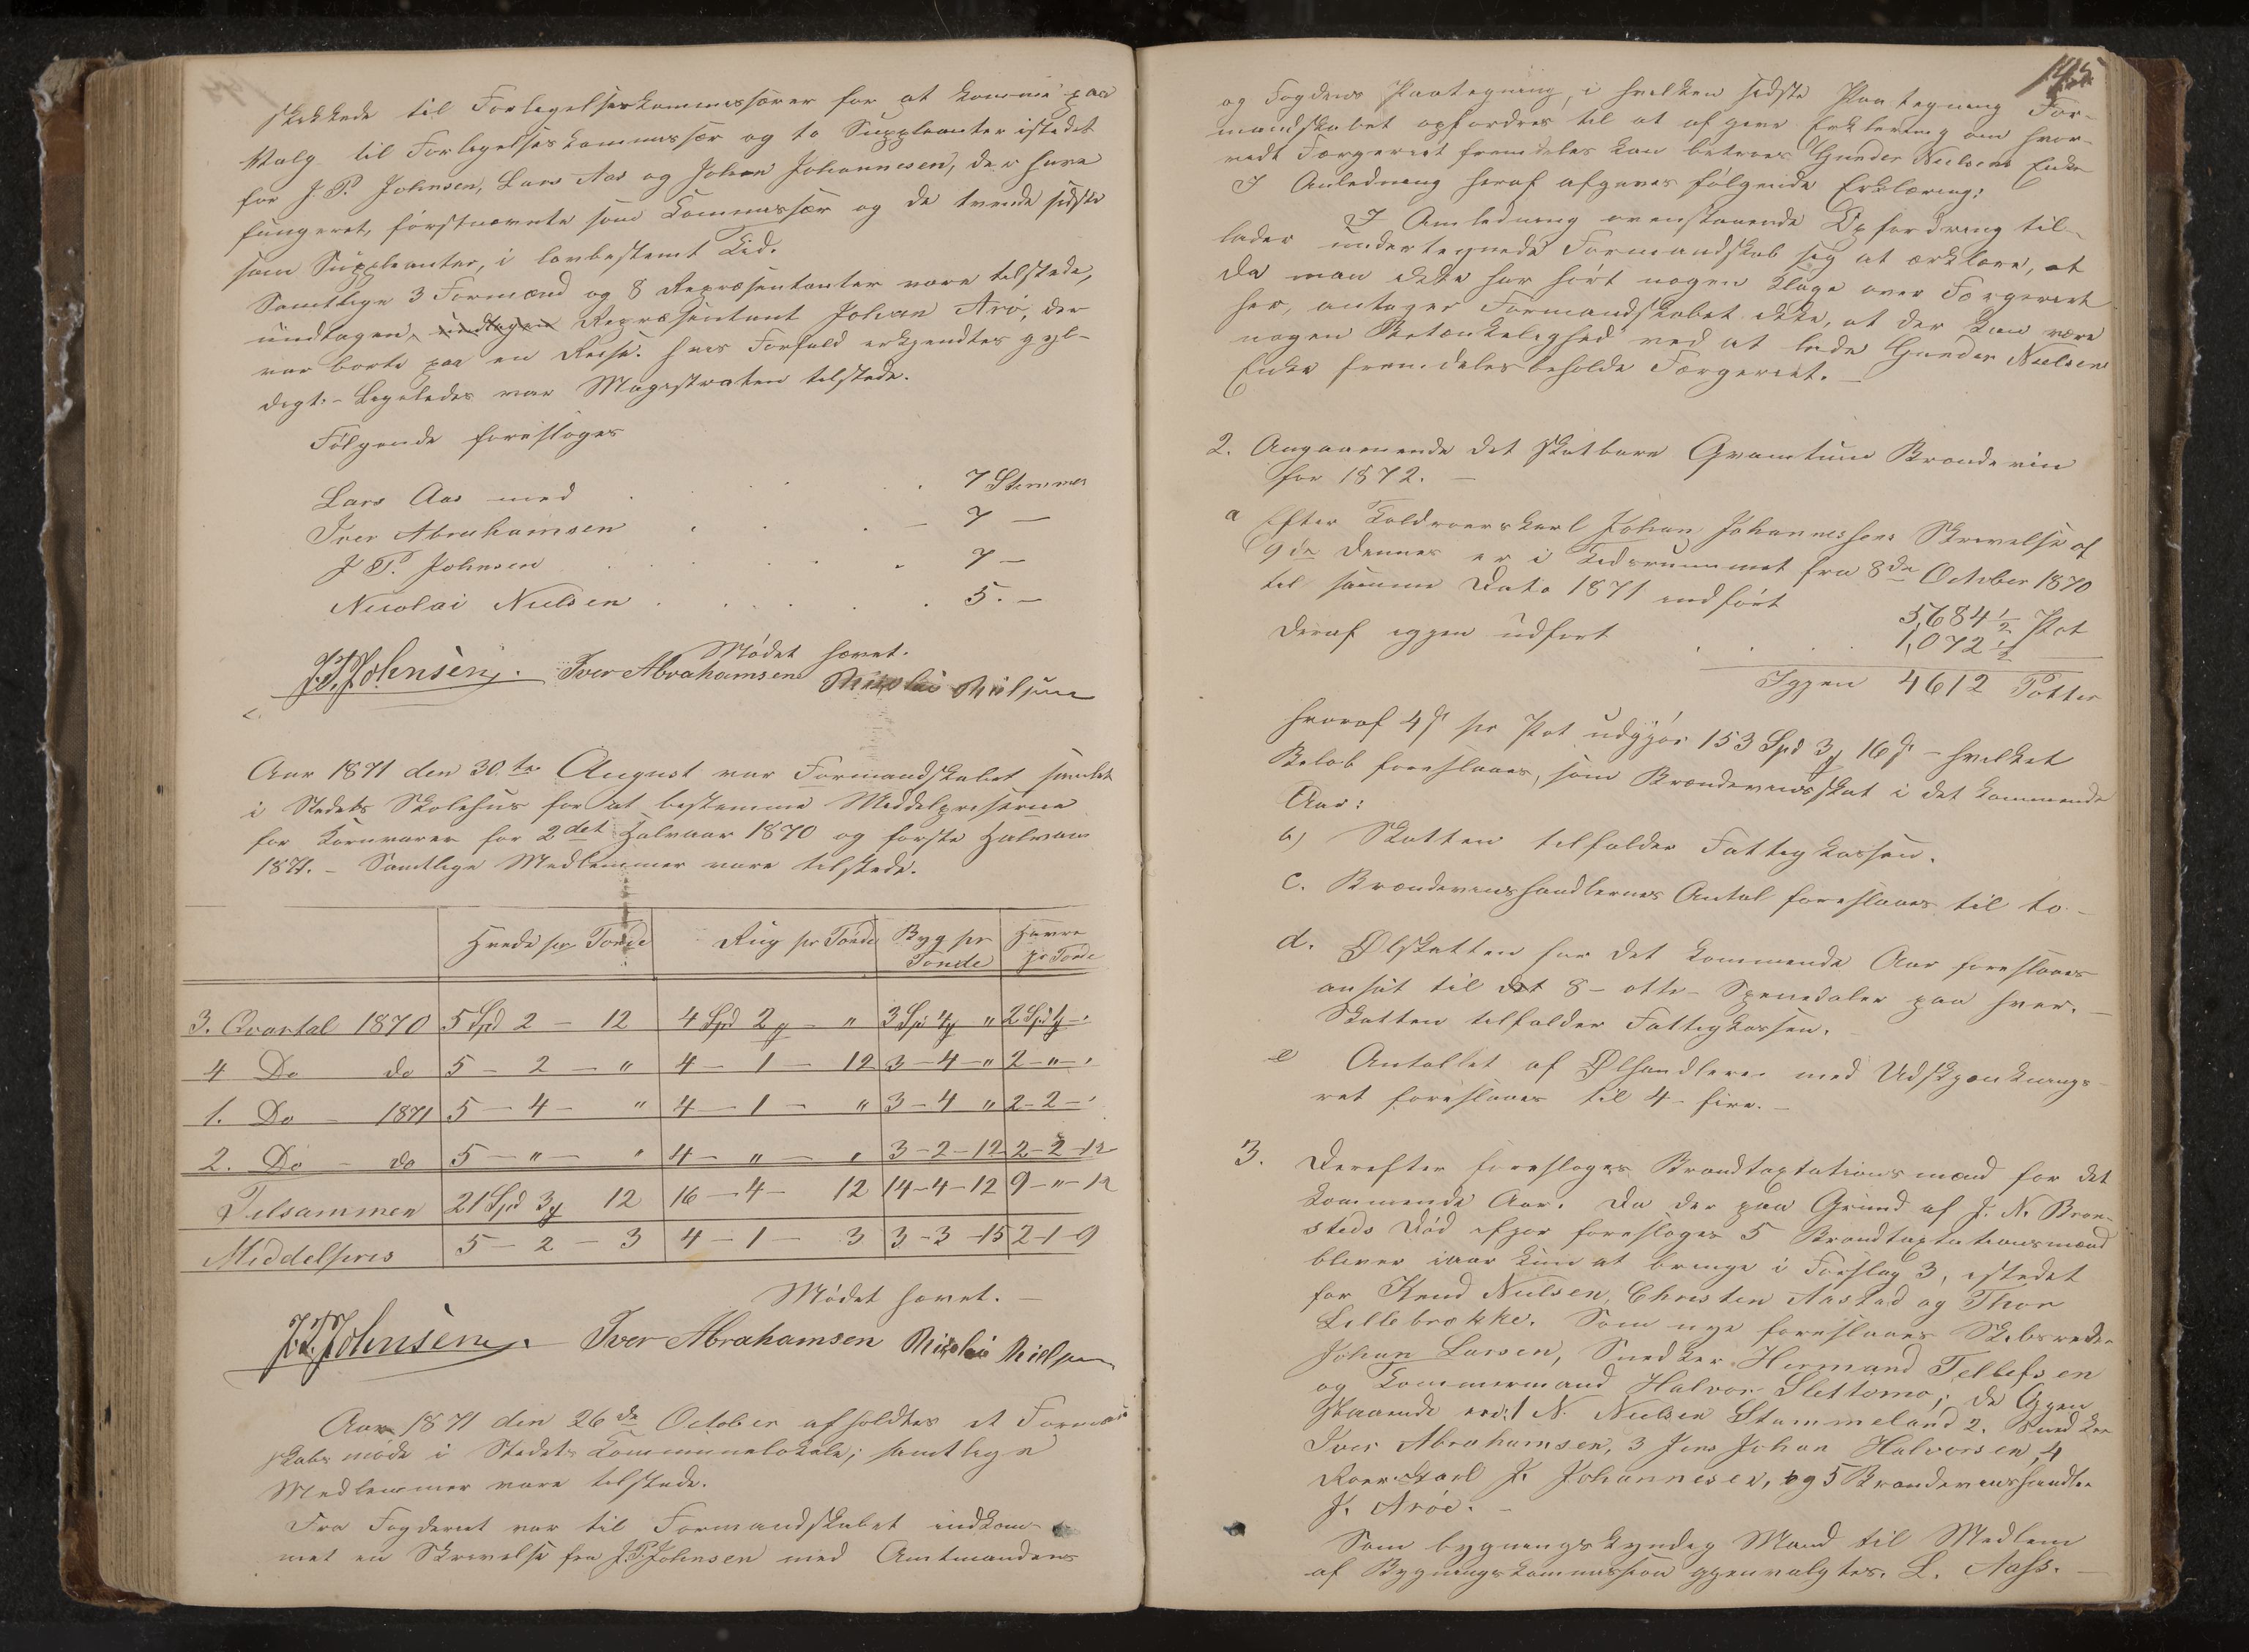 skikkede til Forligelseskommissærer for at komme paa
Valg til Forligelseskommissær og to Suppleanter istedet
for J. P. Johnsen, Lars Aas og Johan Johannesen, der have
fungeret, førstnævnte som Kommissær og de tvende sidste
som Suppleanter, i lovbestemt Tid.
Samtlige 3 Formænd og 8 Repræsentanter vare tilstede,
undtagen Repræsentant Johan Arö, der
var borte paa en Reise. hvis Forfald erkjendtes gyl-
digt. - Ligeledes var Magistraten tilstede.
Følgende foresloges
Lars Aas med . . . 7 Stemmer
Iver Abrahamsen . . . - 7 -
J P. Johnsen . . . 7 -
Nicolai Nielsen . . . . . 5. -
Mödet hævet.
J. P. Johnsen. Iver Abrahamsen Nicolai Nielsen
Aar 1871 den 30.te August var Formandskabet samlet
i Stedets Skolehus for at bestemme Middelpriserne
for Kornvarer for 2det Halvaar 1870 og første Halvaar
1871. - Samtlige Medlemmer vare tilstede.
Hvede pr Tønde Rug pr Tønde Byg pr Tönde Havre pr Tønde
3. Qvartal 1870 5 Spd 2 - 12 4 Spd 2 - " 3 Sp 4 " 2 Spd
4 Do do 5 - 2 - " 4 - 1 - 12 3 - 4 - " 2 - " - "
1. Do - 1871 5 - 4 - " 4 - 1 - " 3 - 4 " 2 - 2 - "
2. Do - do 5 - " - " 4 - " - " 3 - 2 - 12 2 - 2 - 12
Tilsammen 21 Spd 3 12 16 - 4 - 12 14 - 4 - 12 9 - " - 12
Middelpris 5 - 2 - 3 4 - 1 - 3 3 - 3 - 15 2 - 1 - 9
Mödet hævet. -
J. P. Johnsen. Iver Abrahamsen Nicolai Nielsen
Aar 1871 den 26de October afholdtes et Formand
skabsmöde i Stedets Kommunelokale; samtlige
Medlemmer vare tilstede.
Fra Fogderiet var til Formandskabet indkom-
met en Skrivelse fra J. P. Johnsen med Amtmandens
145
og Fogdens Paategning, i hvilken sidste Paategning For-
mandskabet opfordres til at afgive Erklæring om hvor-
vidt Færgeriet fremdeles kan betroes Gunder Nielsens Enke
I Anledning heraf afgaves følgende Erklæring:
I Anledning ovenstaaende Opfordring til-
lader undertegnede Formandskab sig at erklære, at
da man ikke har hørt nogen Klage over Færgeriet
her, antager Formandskabet ikke, at der kan være
nogen Betænkelighed ved at lade Gunder Nielsens
Enke fremdeles beholde Færgeriet. -
2. Angaaende det skatbare Qvantum Brændeviin
for 1872. -
a Efter Toldroerskarl Johan Johannessens Skrivelse af
9de dennes er i Tidsrummet fra 8de October 1870
til samme Dato 1871 indført 5,684 1/2 Pot
deraf igjen udført . . . . 1,072 1/2
Igjen 4612 Potter
hvoraf 4 ß pr Pot udgjør 153 Spd 3 16 ß - hvilket
Beløb foreslaaes, som Brændevinsskat i det kommende
Aar:
b) Skatten tilfalder Fattigkassen.
c. Brændevinshandlernes Antal foreslaaes til to -
d. Ølskatten for det kommende Aar foreslaaes
ansat til det 8 - otte - Speciedaler paa hver. -
Skatten tilfalder Fattigkassen.
e Antallet af Ølhandlere med Udskjænknings-
ret foreslaaes til 4 - fire. -
3. Derefter foresloges Brandtaxtationsmænd for det
kommende Aar. Da der paa Grund af J. N. Bron-
steds Død ifjor foresloges 5 Brandtaxtationsmænd
bliver iaar kun at bringe i Forslag 3, istedet
for Knud Nielsen, Christen Aastad og Thor
Lillebrække. Som nye foreslaaes Skibsreder
Johan Larsen, Snedker Hermand Tellefsen
og Tømmermand Halvor Slettomo; de igjen
staaende ere: 1 N. Nielsen Strammeland 2. Snedker
Iver Abrahamsen, 3 Jens Johan Halvorsen, 4
Roerskarl J. Johannesen, og 5 Brændevinshandler
J. Aröe. -
Som bygningskyndig Mand til Medlem
af Bygningskommission gjenvalgtes L. Aass. -